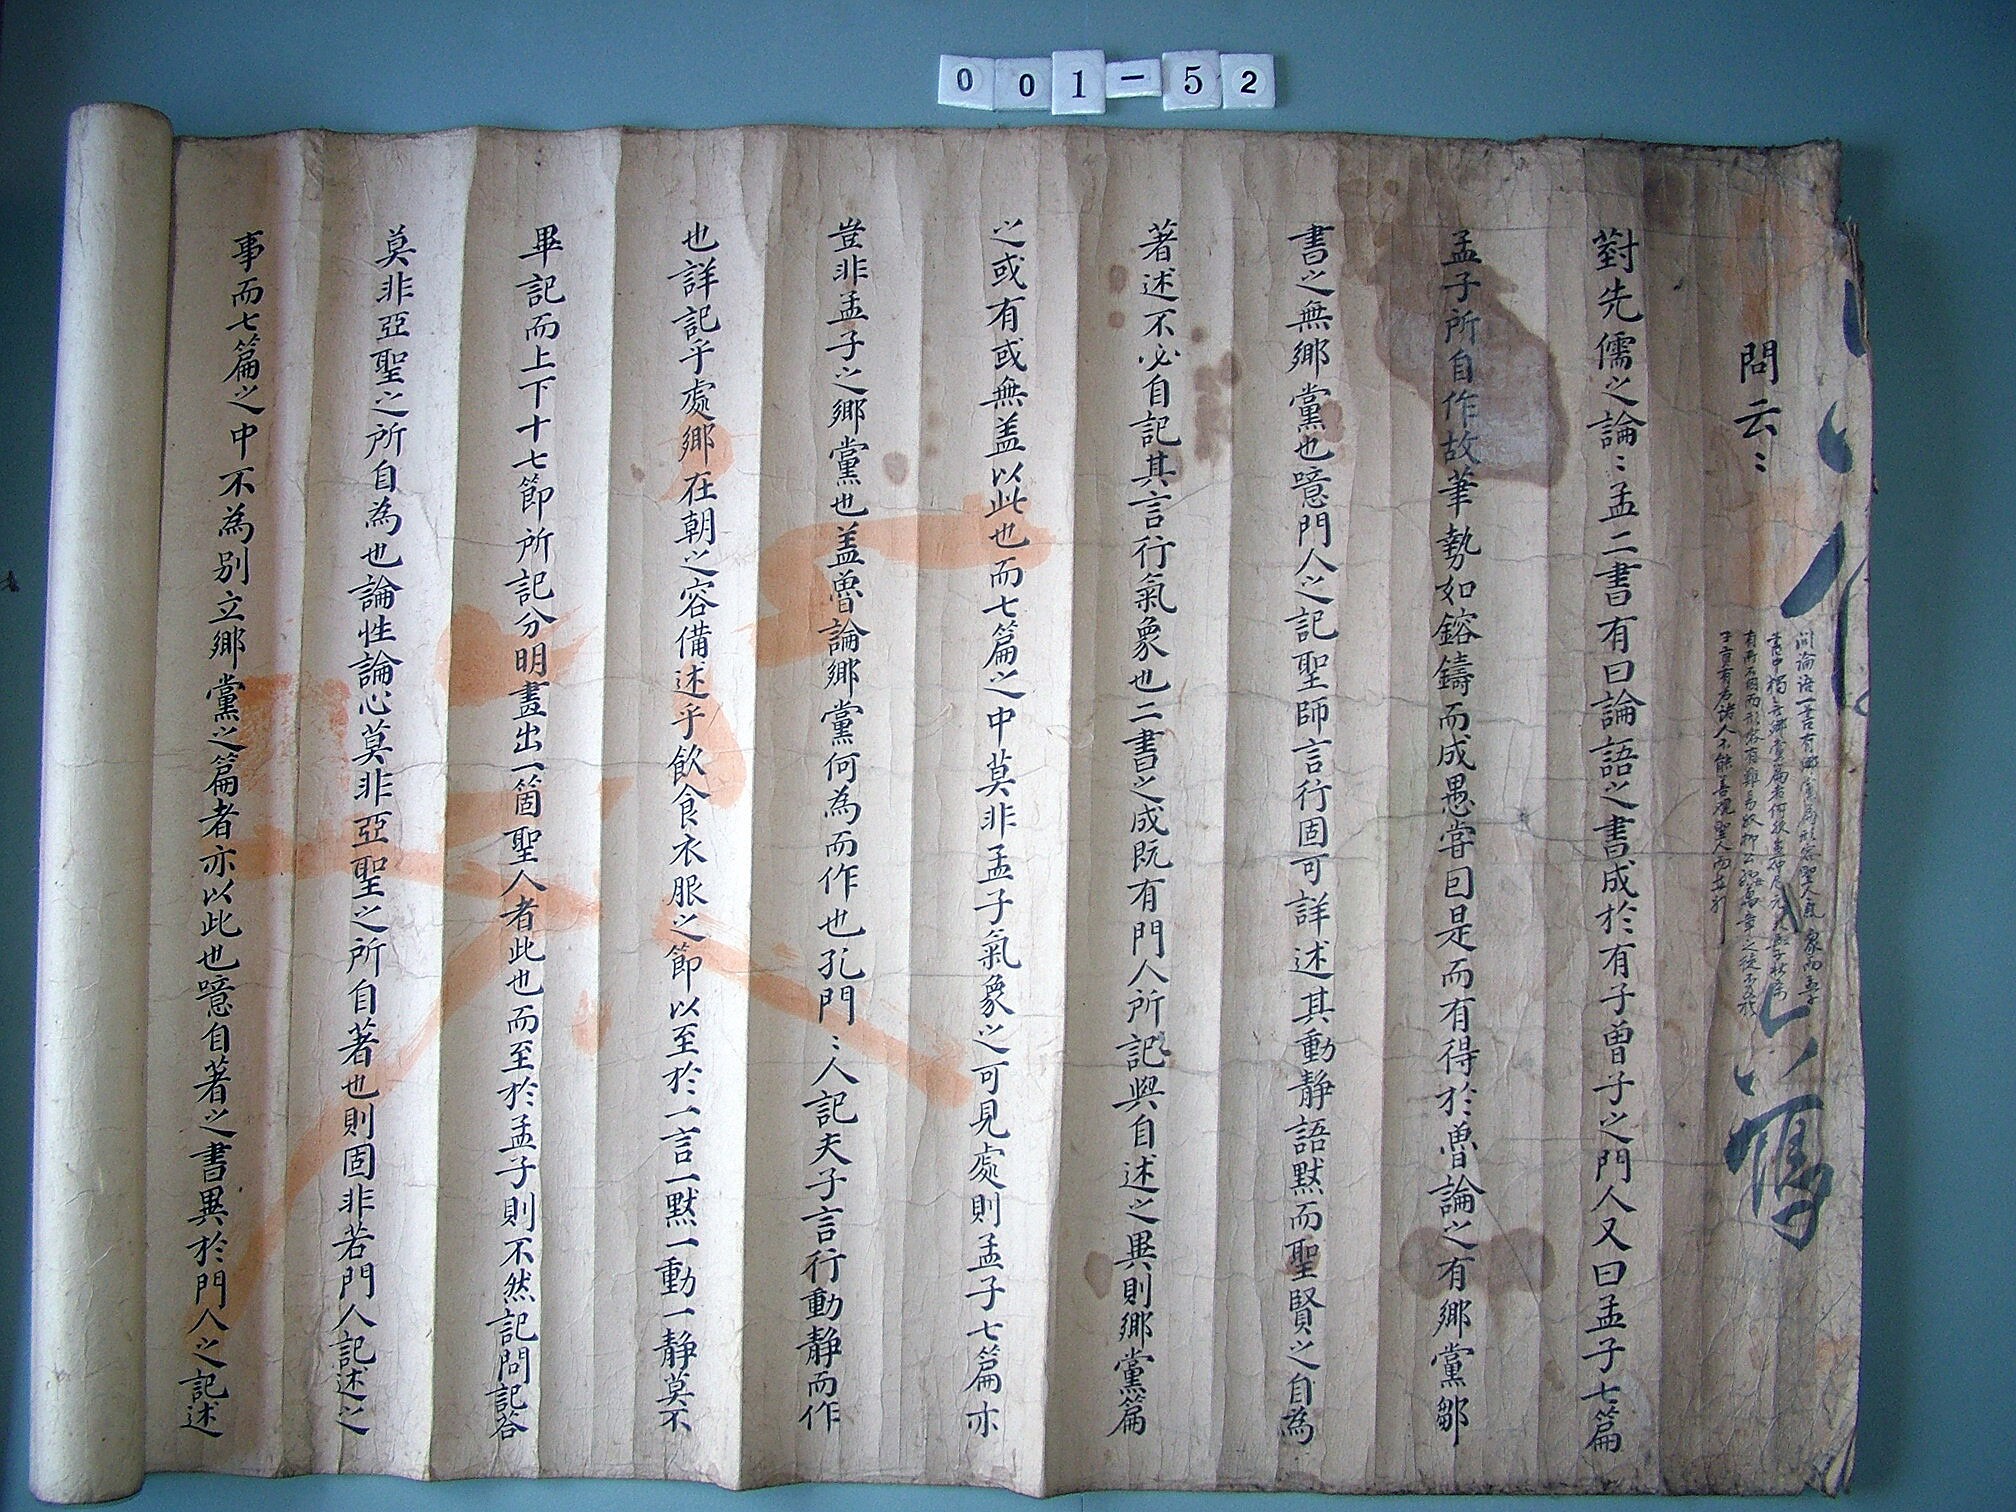 001-52
問云〻
對先儒之論〻孟二書有曰論語之書成於有子曾子之門人又曰孟子七篇
孟子所自作故筆勢如鎔鑄而成愚嘗因是而有得於魯論之有鄉黨鄒
書之無鄉黨也噫門人之記聖師言行固可詳述其動靜語默而聖賢之自為
著述不必自記其言行氣象也二書之成既有門人所記與自述之異則鄉黨篇
之或有或無盖以此也而七篇之中莫非孟子氣象之可見處則孟子七篇亦
豈非孟子之鄉黨也盖魯論鄉黨何為而作也孔門〻人記夫子言行動静而作
也詳記乎處鄉在朝之容備述乎飲食衣服之節以至於一言一默一動一静莫不
畢記而上下十七節所記分明畫出一箇聖人者此也而至於孟子則不然記問記答
莫非亞聖之所自為也論性論心莫非亞聖之所自著也則固非若門人記述之
事而七篇之中不為別立鄉黨之篇者亦以此也噫自著之書異於門人之記述